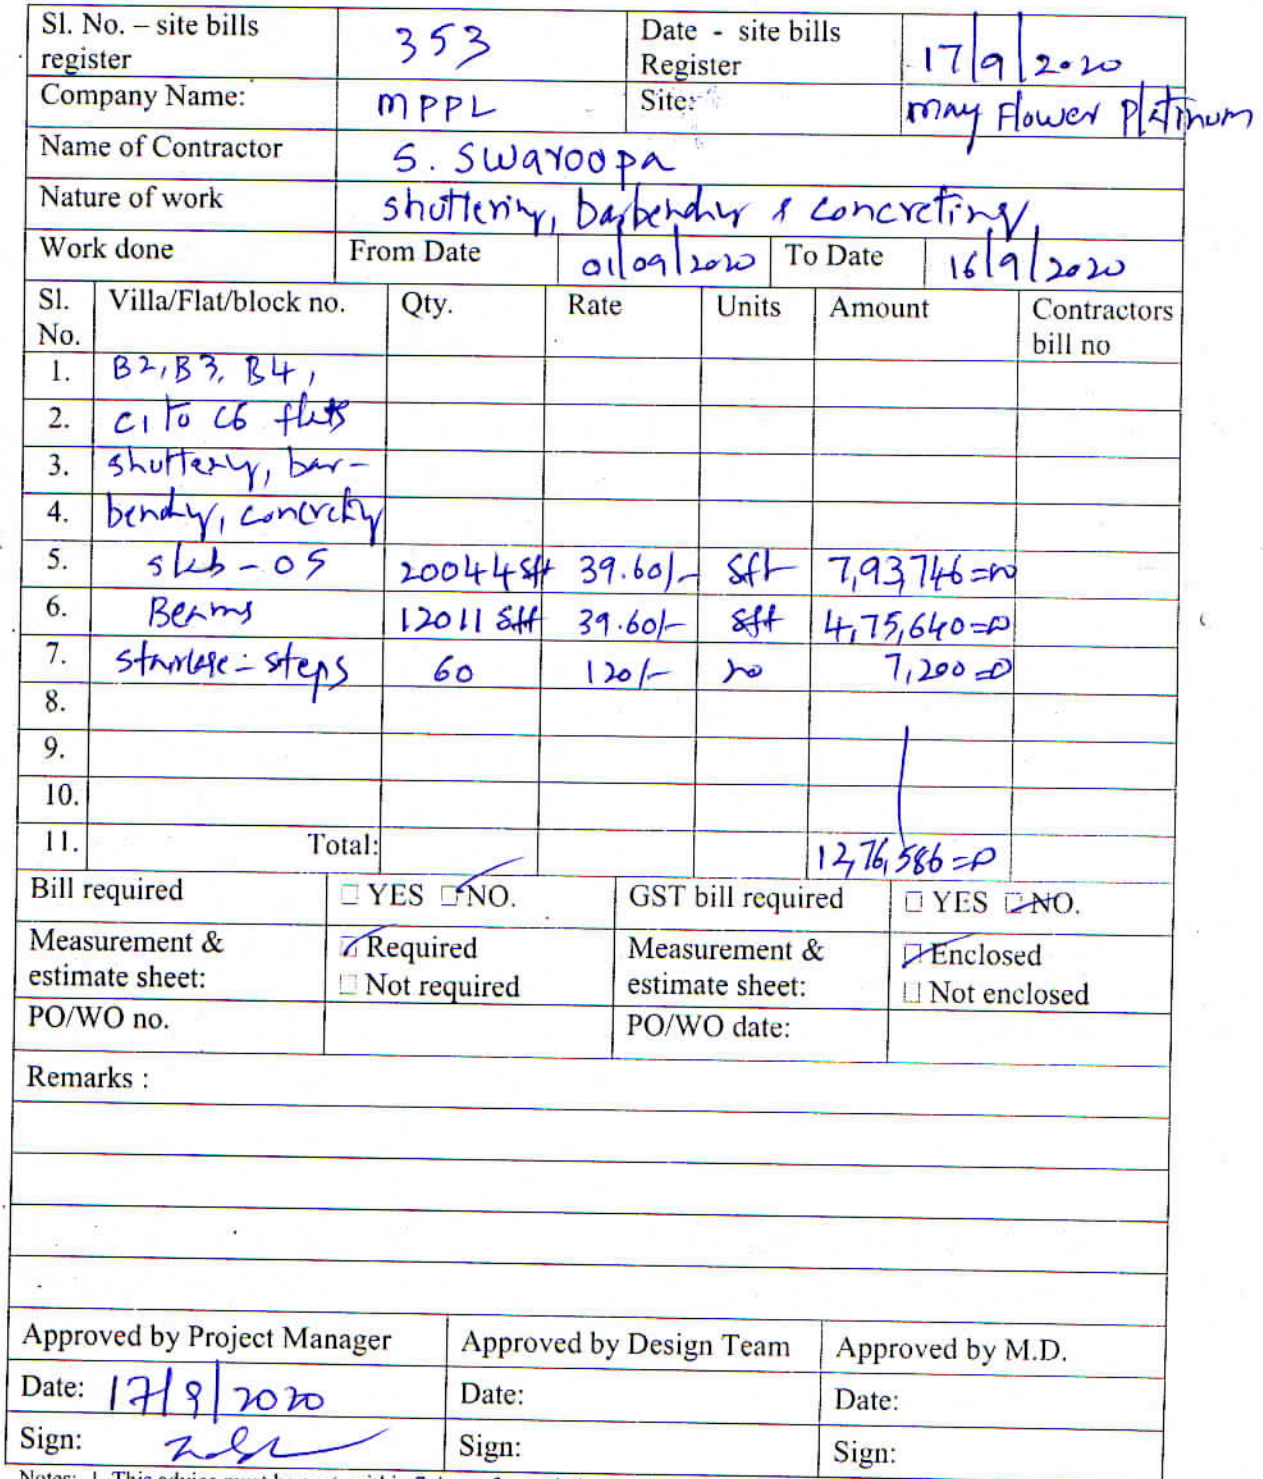 Sl. No. – site bills register 353 Date - site bills Register 17/9/2020
Company Name: MPPL Site: May Flower Platinum
Name of Contractor S. Swaroopa
Nature of work shuttering, barbending & concreting
Work done From Date 01/09/2020 To Date 16/9/2020
Sl. No. Villa/Flat/block no. Qty. Rate Units Amount Contractors bill no
1. B2, B3, B4,
2. C1 to C6 flats
3. shuttering, bar-
4. bending, concreting
5. slab - 05 20044 sft 39.60/- sft 7,93,746=00
6. Beams 12011 sft 39.60/- sft 4,75,640=00
7. staircase - steps 60 120/- no 7,200=00
8.
9.
10.
11. Total: 12,76,586=00
Bill required YES NO. GST bill required YES NO.
Measurement & estimate sheet: Required Measurement & estimate sheet: Enclosed
Not required Not enclosed
PO/WO no. PO/WO date:
Remarks :
Approved by Project Manager Approved by Design Team Approved by M.D.
Date: 17/9/2020 Date: Date:
Sign: Sign: Sign: